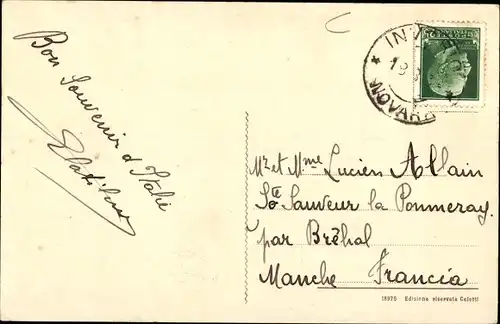 Bon Souvenir d'Italie
INV
NOVARA
Mr et Mme Lucien Allain
Ste Sauveur la Pommeray
par Bréhal
Manche Francia
18975 Edizione riservata Galotti